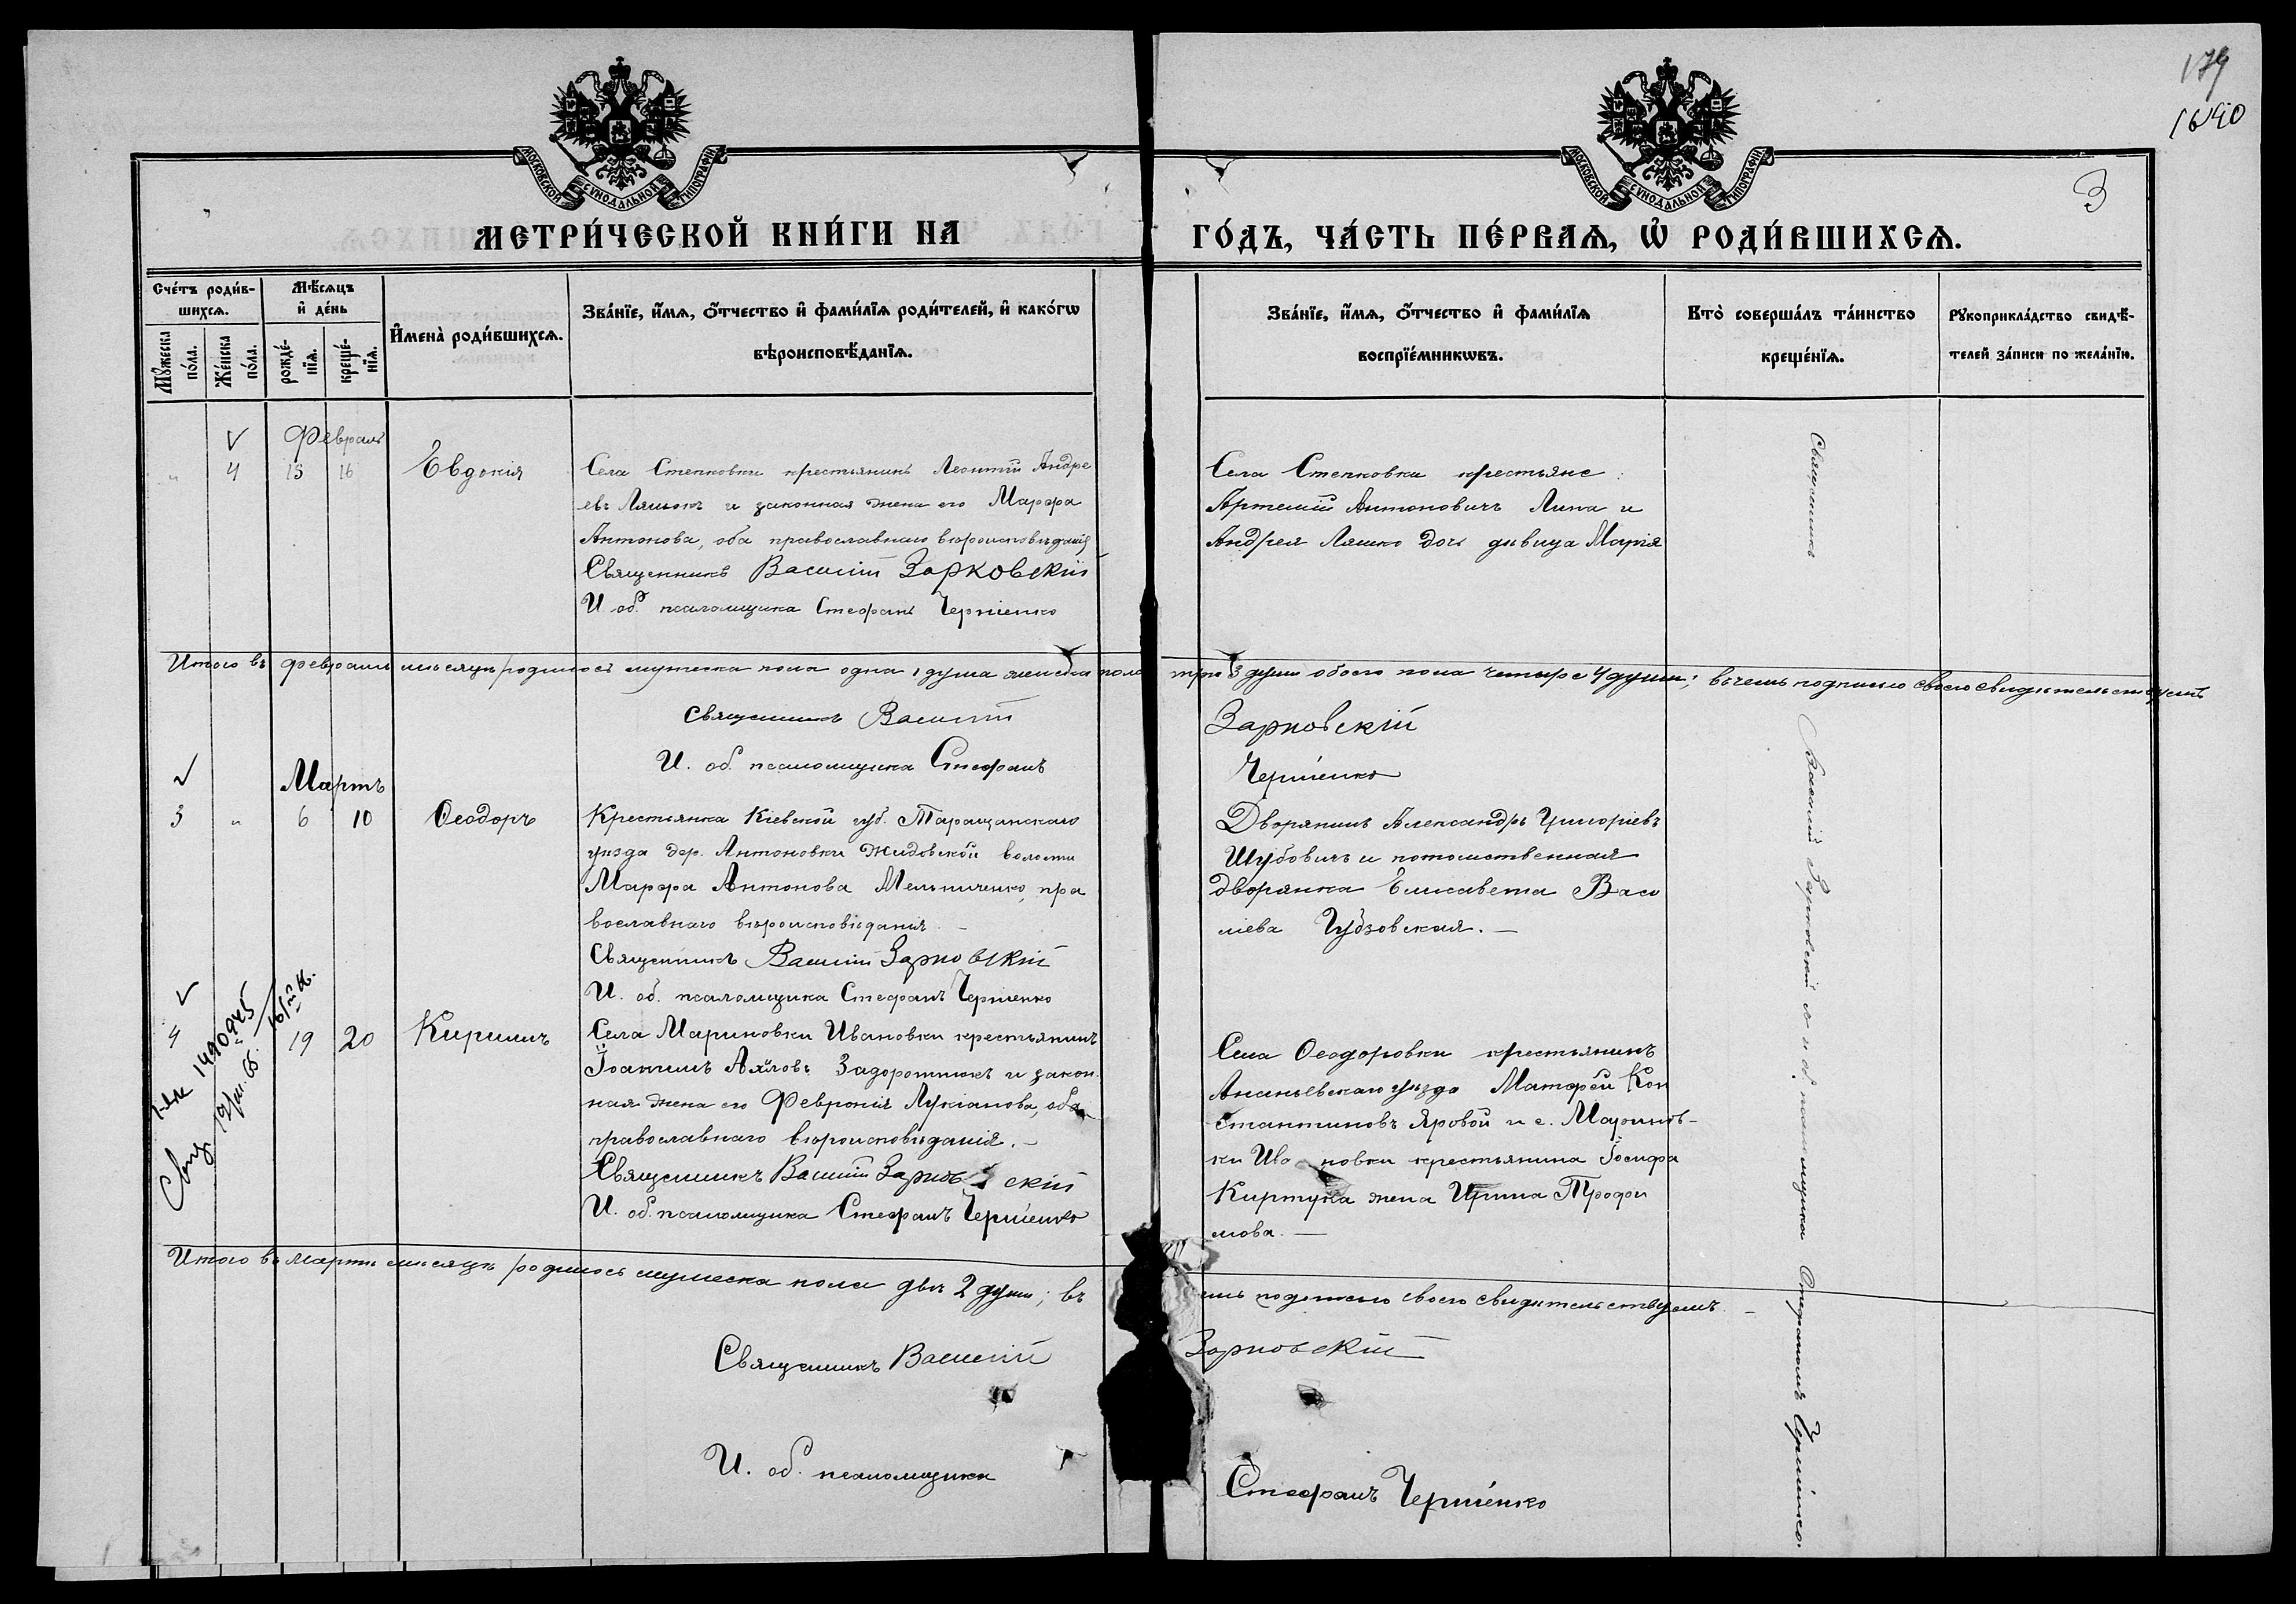 179
1640
3
МОСКОВСКОЙ СѴНОДАЛЬНОЙ ТИПОГРАФІИ
МОСКОВСКОЙ СѴНОДАЛЬНОЙ ТИПОГРАФІИ
МЕТРИ́ЧЕСКОЙ КНИ́ГИ НА ГО́ДЪ, ЧА́СТЬ ПЕ́РВАѦ, Ѡ҆ РОДИ́ВШИХСѦ.
Сче́тъ роди́в-
шихсѧ.
Мѣ́сѧцъ
и҆ де́нь
Мꙋ́жеска
по́ла.
Же́нска
по́ла.
рожде́-
нїѧ.
креще́-
нїѧ.
И҆мена̀ роди́вшихсѧ.
Зва́нїе, и҆́мѧ, ѻ҆́тчество и҆ фами́лїѧ роди́телей, и҆ како́гѡ
вѣроисповѣ́данїѧ.
Зва́нїе, и҆́мѧ, ѻ҆́тчество и҆ фами́лїѧ
воспрїе́мникѡвъ.
Кто̀ соверша́лъ та́инство
креще́нїѧ.
Рꙋкоприкла́дство свидѣ́-
телей за́писи по жела́нїю.
Февраль
" 4 15 16 Евдокія
Села Степковки крестьянинъ Леонтій Андре
евъ Ляшокъ и законная жена его Марфа
Антонова, оба православнаго вѣроисповѣданія
Священникъ Василій Зарковскій
И об. псаломщика Стефанъ Черніенко
Села Степковки крестьяне:
Артемій Антоновичъ Липа и
Андрея Ляшко дочь дѣвица Марія
Итого въ февралѣ мѣсяцѣ родилось мужеска пола одна 1 душа женска пола три 3 души обоего пола четыре 4 души; въ чемъ подписью своею свидѣтельствуемъ
Священникъ Василій Зарковскій
И. об. псаломщика Стефанъ Черніенко
Мартъ
3 " 6 10 Ѳеодоръ
Крестьянка Кіевской губ. Таращанскаго
уѣзда дер. Антоновки Жидовской волости
Марфа Антонова Мельниченко, пра
вославнаго вѣроисповѣданія. –
Священникъ Василій Зарковскій
И. об. псаломщика Стефанъ Черніенко
Дворянинъ Александръ Григоріевъ
Шубовичъ и потомственная
дворянка Елисавета Васи
ліева Губовская. –
4 " 19 20 Кириллъ
Села Мариновки Ивановки крестьянинъ
Іоакимъ Задорожнюкъ и закон
ная жена его Февронія Лукіанова, оба
православнаго вѣроисповѣданія. –
Священникъ Василій Зарковскій
И. об. псаломщика Стефанъ Черніенко
Села Ѳеодоровки крестьянинъ
Ананьевскаго уѣзда Матфей Кон
стантиновъ Яровой и с. Маринов-
ки Ивановки крестьянина Іосифа
Киртука жена Ирина Трофи
мова. –
Итого въ Мартѣ мѣсяцѣ родилось мужеска пола двѣ 2 души; въ чемъ подписью своею свидѣтельствуемъ. –
Священникъ Василій Зарковскій
И. об. псаломщика Стефанъ Черніенко
Священникъ Василій Зарковскій съ и. об. псаломщика Стефаномъ Черніенко.